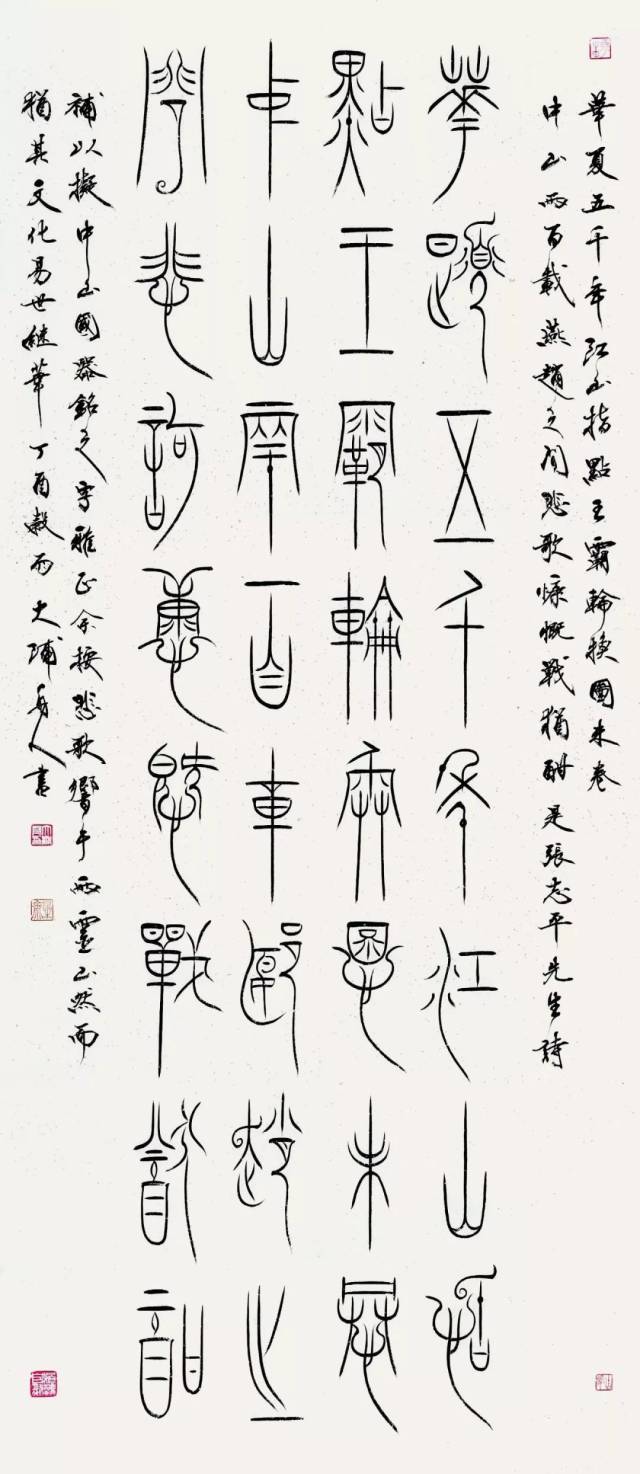 華夏五千年江山指點王霸輪換圖未卷
中山兩百載燕趙之間悲歌慷慨戰猶酣是張志平先生詩
華夏五千年江山指
點王霸輪換圖未卷
中山兩百載燕趙之
間悲歌慷慨戰猶酣
補以擬中山國器銘之字雅正余按悲歌響乎靈山然而
猶其文化易世繼華丁酉穀雨大人書